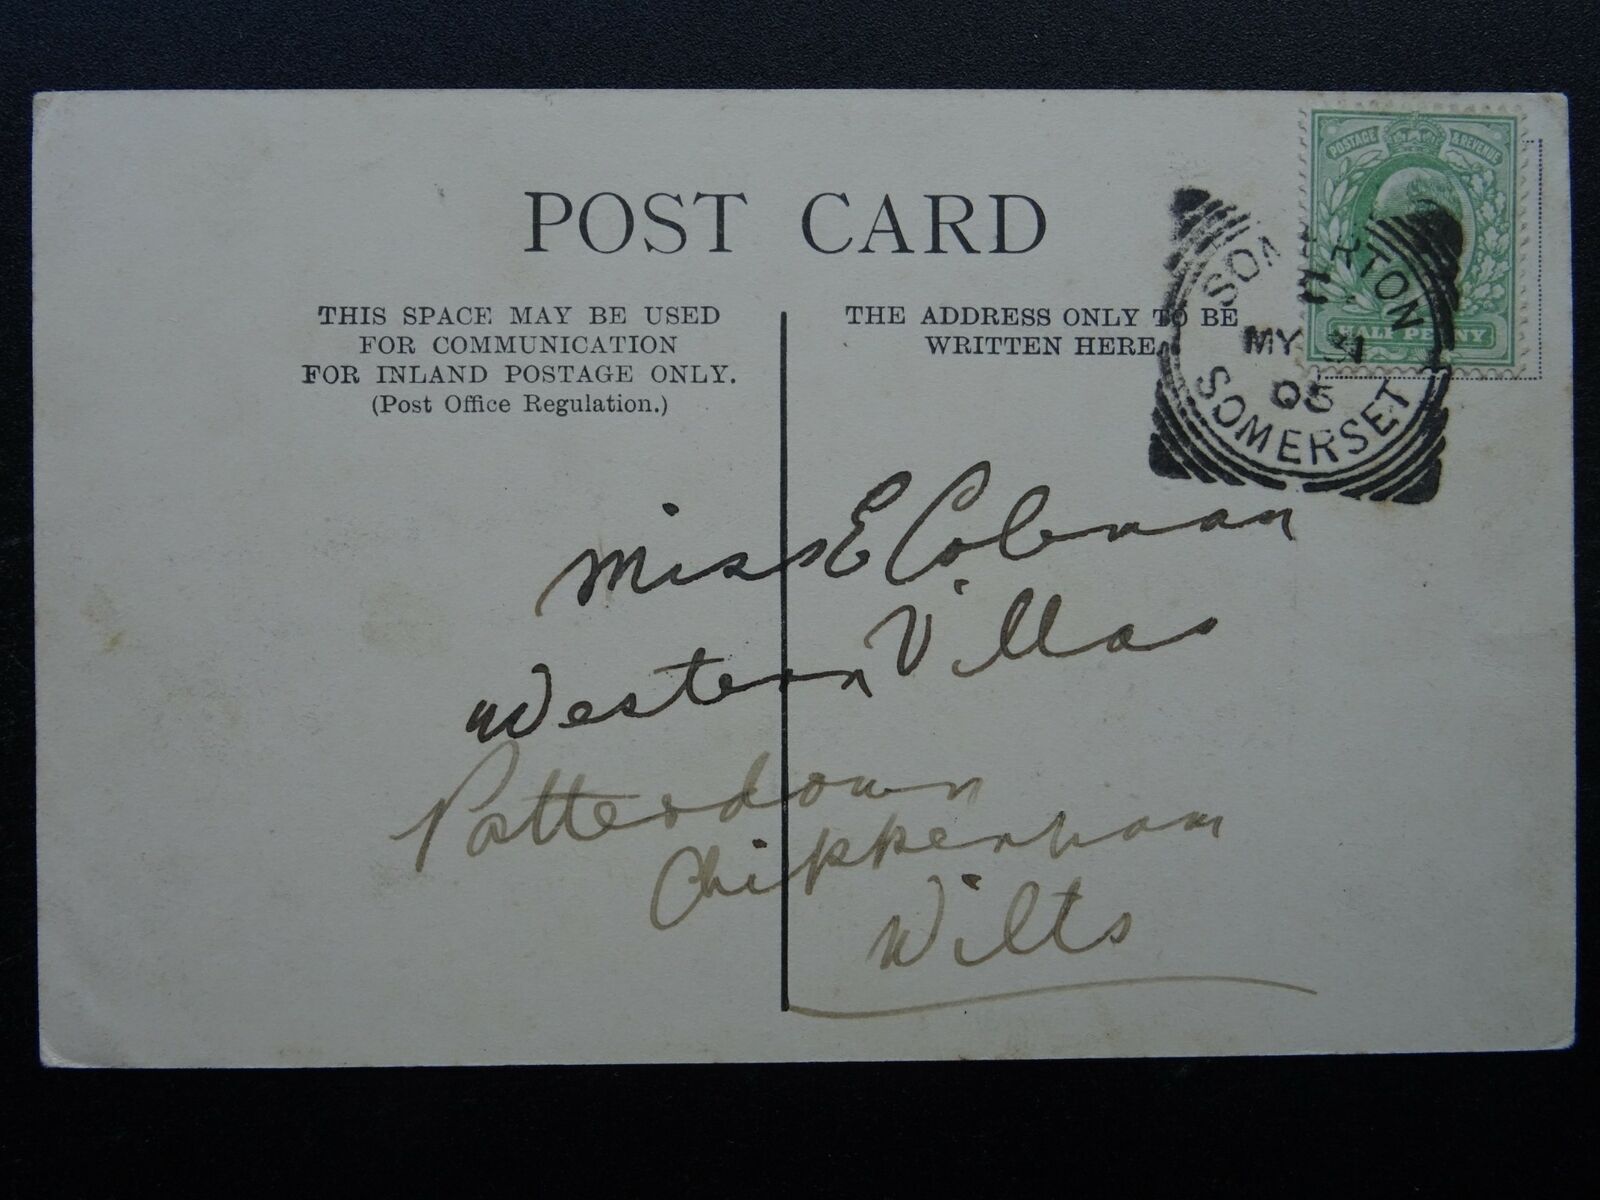 POST CARD
THIS SPACE MAY BE USED
FOR COMMUNICATION
FOR INLAND POSTAGE ONLY.
(Post Office Regulation.)
THE ADDRESS ONLY TO BE
WRITTEN HERE.
POSTAGE & REVENUE
HALF PENNY
SOM RTON
MY 31
05
SOMERSET
Miss E Coleman
Western Villas
Patterdown
Chippenham
Wilts